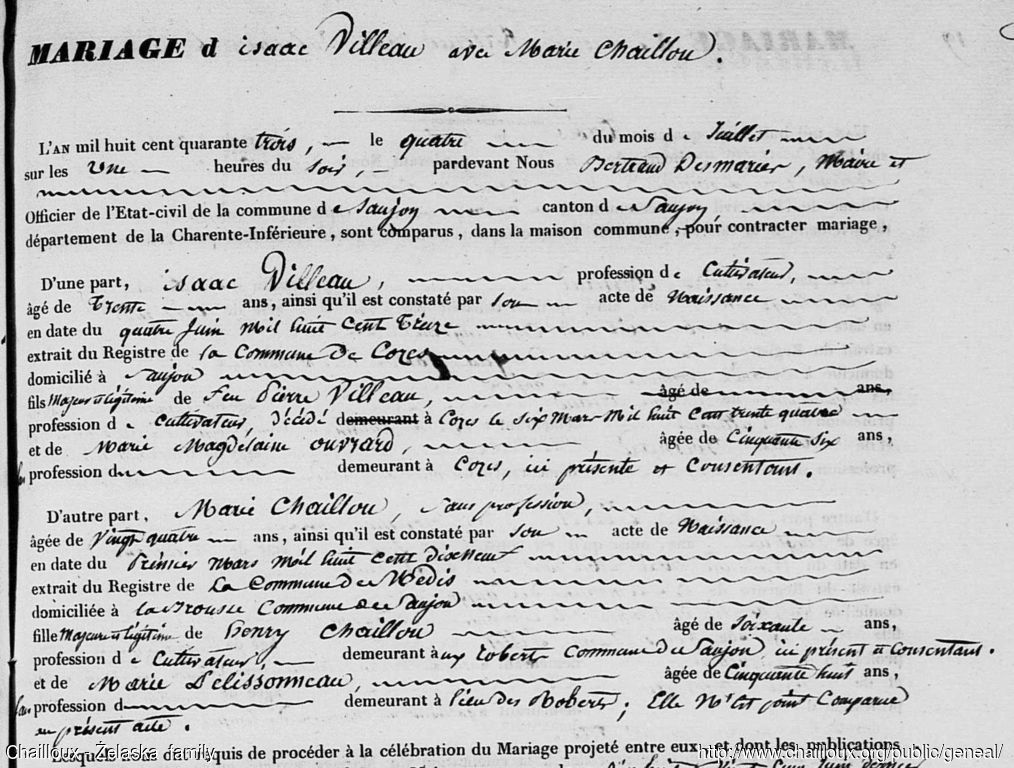 MARIAGE d isaac Villeau avec Marie Chaillou.
L'AN mil huit cent quarante trois, le quatre du mois de Juillet
sur les Une heures du Soir, pardevant Nous Bertrand Desmaries, Maire et
Officier de l'Etat-civil de la commune de Saujon canton de Saujon
département de la Charente-Inférieure, sont comparus, dans la maison commune, pour contracter mariage,
D'une part, isaac Villeau, profession de Cultivateur,
âgé de Trente ans, ainsi qu'il est constaté par Son acte de Naissance
en date du quatre Juin Mil huit Cent Treize
extrait du Registre de la Commune de Cozes
domicilié à Saujon
fils Majeur et légitime de feu Pierre Villeau, âgé de ans,
profession de Cultivateur, décédé demeurant à Cozes le Six Mars Mil huit Cent trente quatre
et de Marie Magdelaine Ouvrard, âgée de Cinquante Six ans,
San profession d demeurant à Cozes, ici présente et Consentant.
D'autre part, Marie Chaillou, Sans profession,
âgée de Vingt quatre ans, ainsi qu'il est constaté par Son acte de Naissance
en date du Prémier Mars Mil huit Cent dixneuf
extrait du Registre de La Commune de Médis
domiciliée à la Brousse Commune de Saujon
fille Majeure et légitime de henry Chaillou âgé de Soixante ans,
profession de Cultivateur, demeurant aux Roberts Commune de Saujon ici présent et Consentant.
et de Marie Pelissonneau, âgée de Cinquante huit ans,
San profession d demeurant à lieu des Roberts; Elle N'est point Comparue
au présent acte.
Lesquels nous ont requis de procéder à la célébration du Mariage projeté entre eux, et dont les publications
Chailloux - Żelaska family
http://www.chailloux.org/public/geneal/